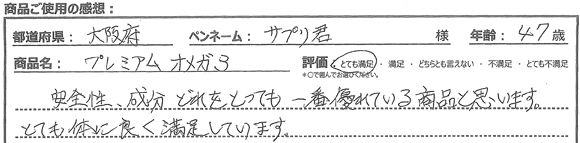 商品ご使用の感想：
都道府県： 大阪府 ペンネーム： サプリ君 様 年齢： 47 歳
商品名： プレミアム オメガ3 評価 とても満足 ・ 満足 ・ どちらとも言えない ・ 不満足 ・ とても不満足
*〇で囲んでお選びください。
安全性、成分 どれをとっても 一番優れている商品と思います。
とても体に良く満足しています。